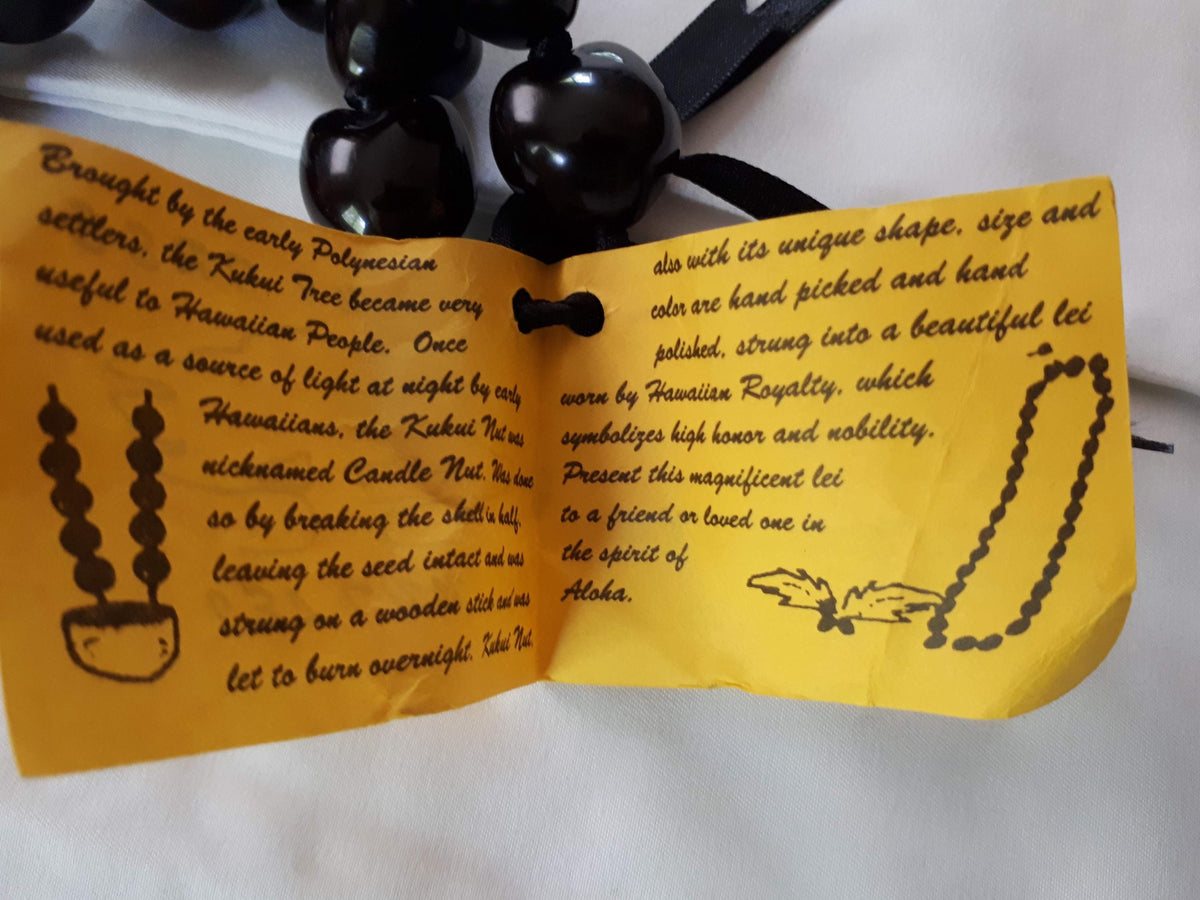 Brought by the early Polynesian
settlers, the Kukui Tree became very
useful to Hawaiian People. Once
used as a source of light at night by early
Hawaiians, the Kukui Nut was
nicknamed Candle Nut. Was done
so by breaking the shell in half,
leaving the seed intact and was
strung on a wooden stick and was
let to burn overnight. Kukui Nut,
also with its unique shape, size and
color are hand picked and hand
polished, strung into a beautiful lei
worn by Hawaiian Royalty, which
symbolizes high honor and nobility.
Present this magnificent lei
to a friend or loved one in
the spirit of
Aloha.